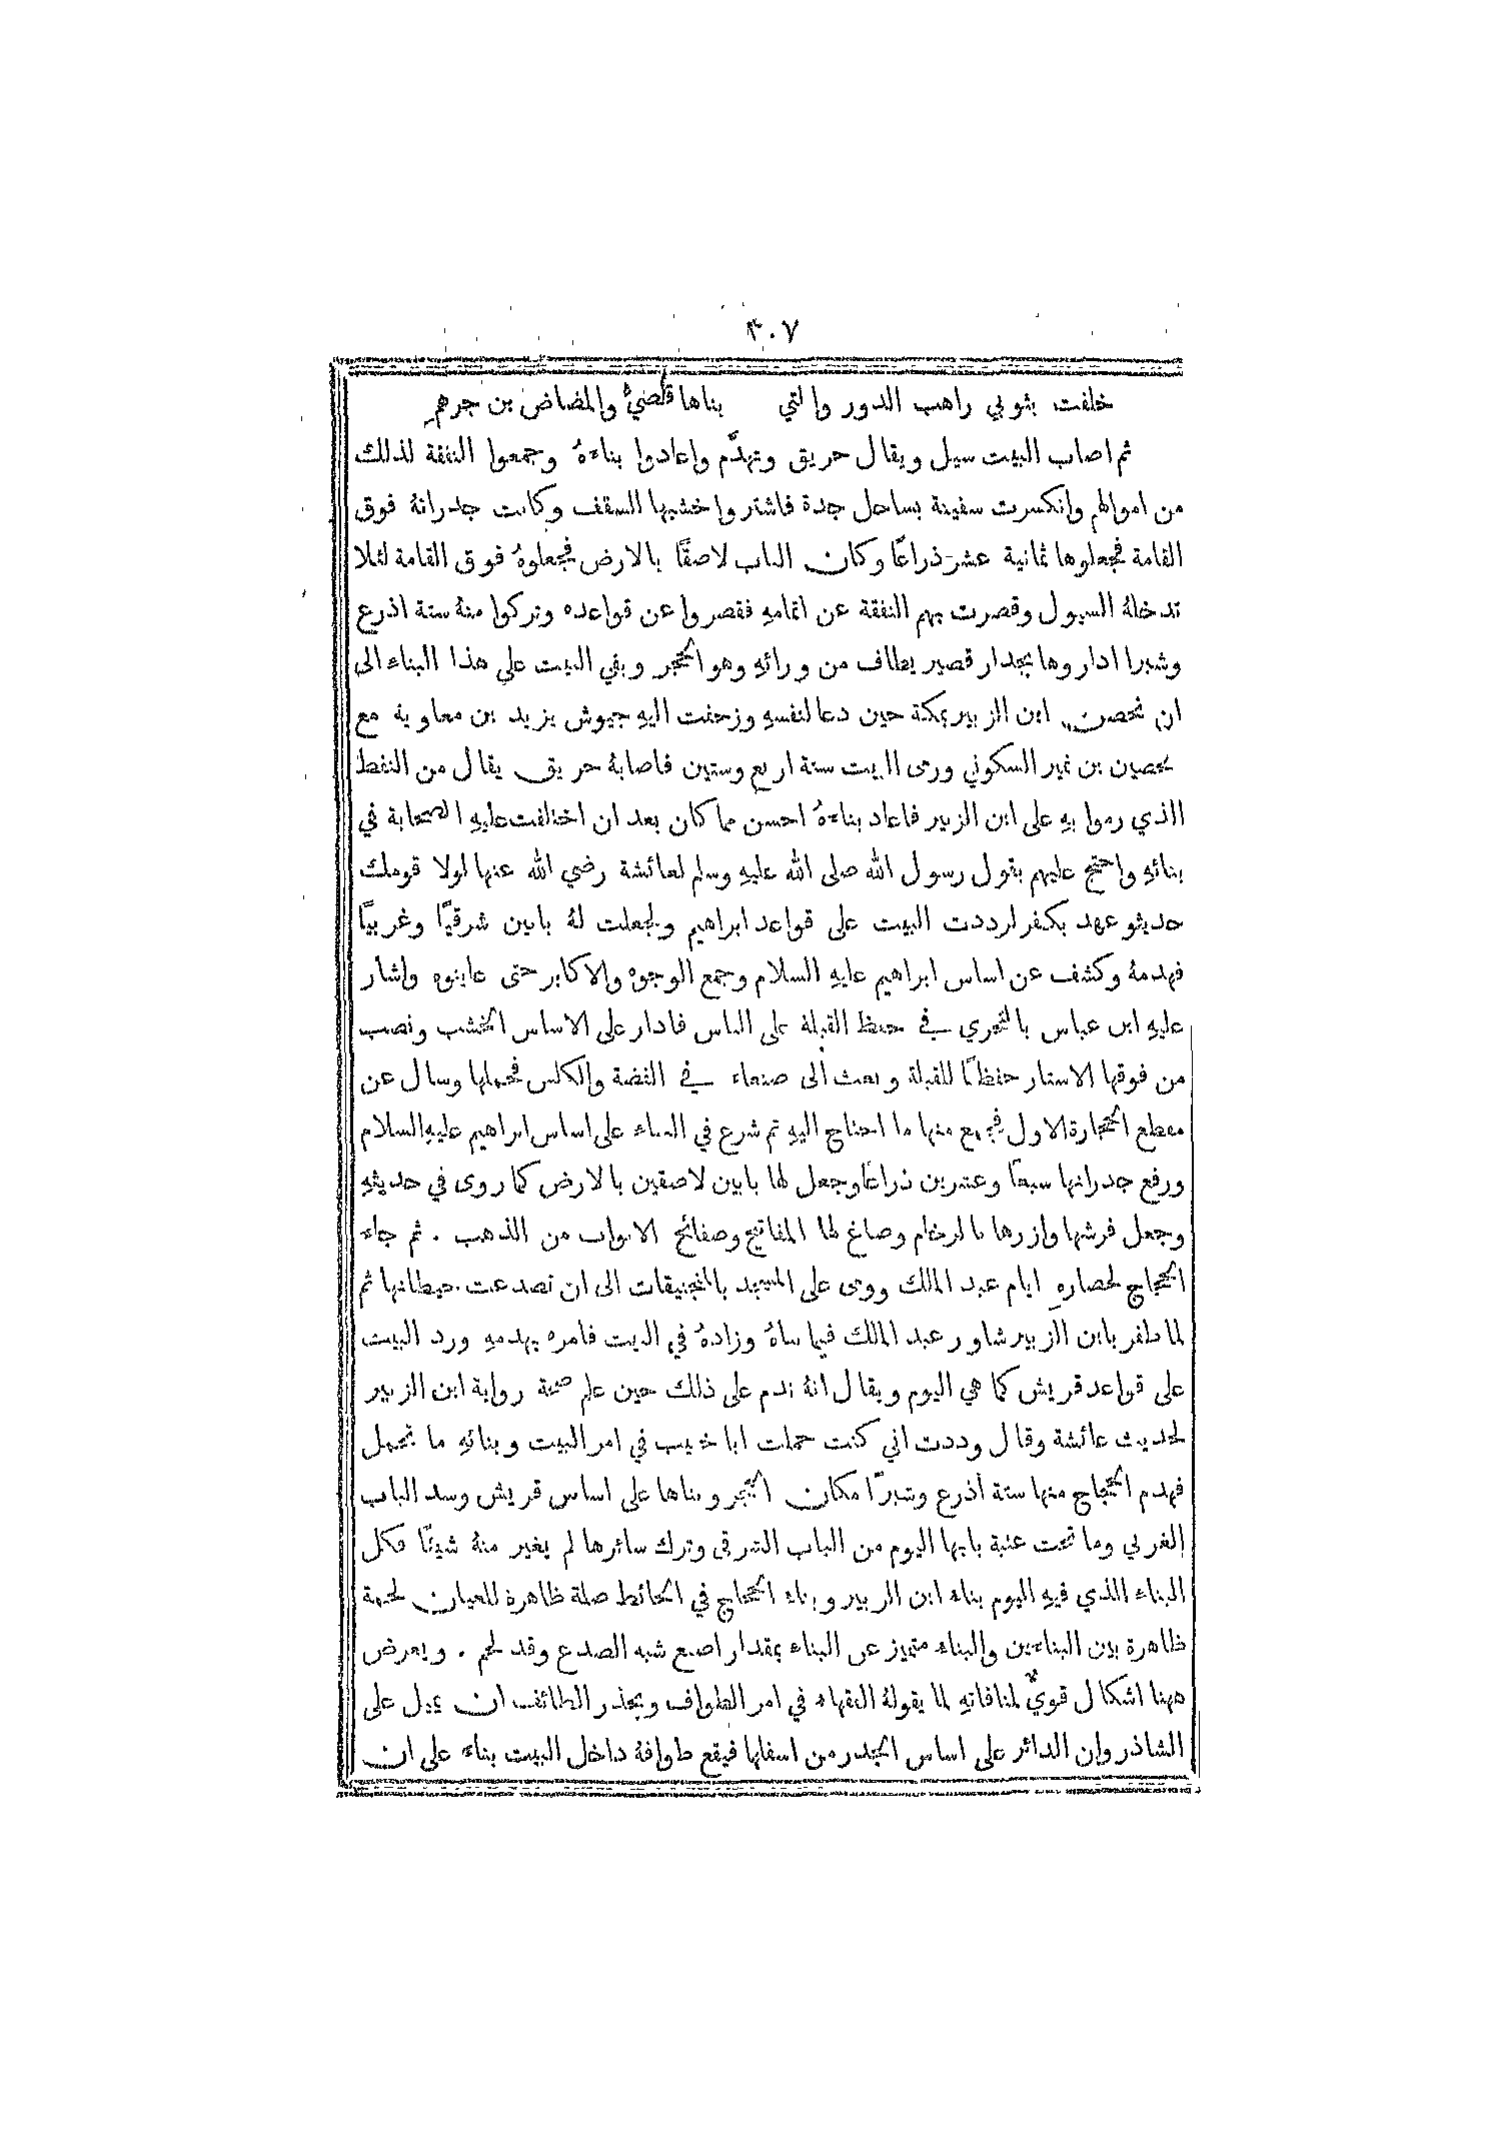 ٣٠٧
خلفت بثوبي راهب الدور والتي بناها قصيٌّ والمضاض بن جرهم
ثم اصاب البيت سيل ويقال حريق وتهدَّم واعادوا بناءهُ وجمعوا النفقة لذلك
من اموالهم وانكسرت سفينة بساحل جدة فاشتروا خشبها للسقف وكانت جدرانهُ فوق
القامة فجعلوها ثمانية عشر ذراعًا وكان الباب لاصقًا بالارض فجعلوهُ فوق القامة لئلا
تدخلهُ السيول وقصرت بهم النفقة عن اتمامهِ فقصروا عن قواعده وتركوا منهُ ستة اذرع
وشبرا اداروها بجدار قصير يطاف من ورائهِ وهو الحجر وبقي البيت على هذا البناء الى
ان تحصن ابن الزبير بمكة حين دعا لنفسهِ وزحفت اليهِ جيوش يزيد بن معاوية مع
حصين بن نمير السكوني ورمى البيت سنة اربع وستين فاصابهُ حريق يقال من النفط
الذي رموا بهِ على ابن الزبير فاعاد بناءهُ احسن مما كان بعد ان اختلفت عليهِ الصحابة في
بنائهِ واحتج عليهم بقول رسول الله صلى الله عليهِ وسلم لعائشة رضي الله عنها لولا قومك
حديثو عهد بكفر لرددت البيت على قواعد ابراهيم ولجعلت لهُ بابين شرقيًّا وغربيًّا
فهدمهُ وكشف عن اساس ابراهيم عليهِ السلام وجمع الوجوه والاكابر حتى عاينوه واشار
عليهِ ابن عباس بالتحري في حفظ القبلة على الناس فادار على الاساس الخشب ونصب
من فوقها الاستار حفظًا للقبلة وبعث الى صنعاء في الفضة والكلس فحملها وسال عن
مقطع الحجارة الاول فجمع منها ما احتاج اليهِ ثم شرع في البناء على اساس ابراهيم عليهِ السلام
ورفع جدرانها سبعًا وعشرين ذراعًا وجعل لها بابين لاصقين بالارض كما روى في حديثهِ
وجعل فرشها وازرها بالرخام وصاغ لها المفاتيح وصفائح الابواب من الذهب . ثم جاء
الحجاج لحصارهِ ايام عبد الملك ورمى على المسجد بالمنجنيقات الى ان تصدعت حيطانها ثم
لما ظفر بابن الزبير شاور عبد الملك فيما بناهُ وزادهُ في البيت فامره بهدمهِ ورد البيت
على قواعد قريش كما هي اليوم ويقال انهُ ندم على ذلك حين علم صحة رواية ابن الزبير
لحديث عائشة وقال وددت اني كنت حملت ابا خبيب في امر البيت وبنائهِ ما تحمل
فهدم الحجاج منها ستة أذرع وشبرًا مكان الحجر وبناها على اساس قريش وسد الباب
الغربي وما تحت عتبة بابها اليوم من الباب الشرقي وترك سائرها لم يغير منهُ شيئًا فكل
البناء الذي فيهِ اليوم بناء ابن الزبير وبناء الحجاج في الحائط صلة ظاهرة للعيان لحمة
ظاهرة بين البناءين والبناء متميز عن البناء بمقدار اصبع شبه الصدع وقد لحم . ويعرض
ههنا اشكال قويٌّ لمنافاتهِ لما يقولهُ الفقهاء في امر الطواف ويحذر الطائف ان يميل على
الشاذروان الدائر على اساس الجدر من اسفلها فيقع طوافهُ داخل البيت بناء على ان